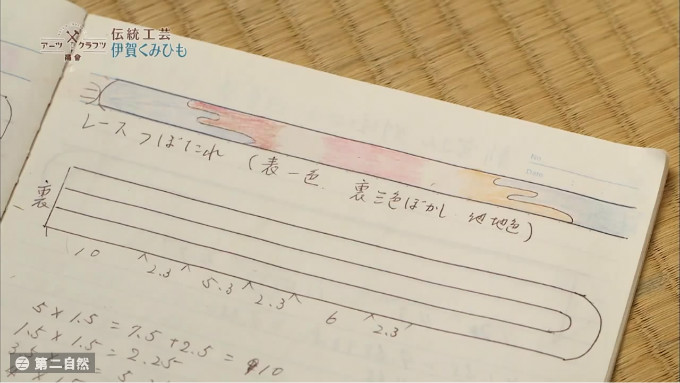 アーツ クラフツ
商會
伝統工芸
伊賀くみひも
レース つぼたれ (表一色 裏三色ぼかし 地色)
裏
10 2.3 5.3 2.3 6 2.3
5 × 1.5 = 7.5 + 2.5 = 10
1.5 × 1.5 = 2.25
× 1.5 = 5
第二自然